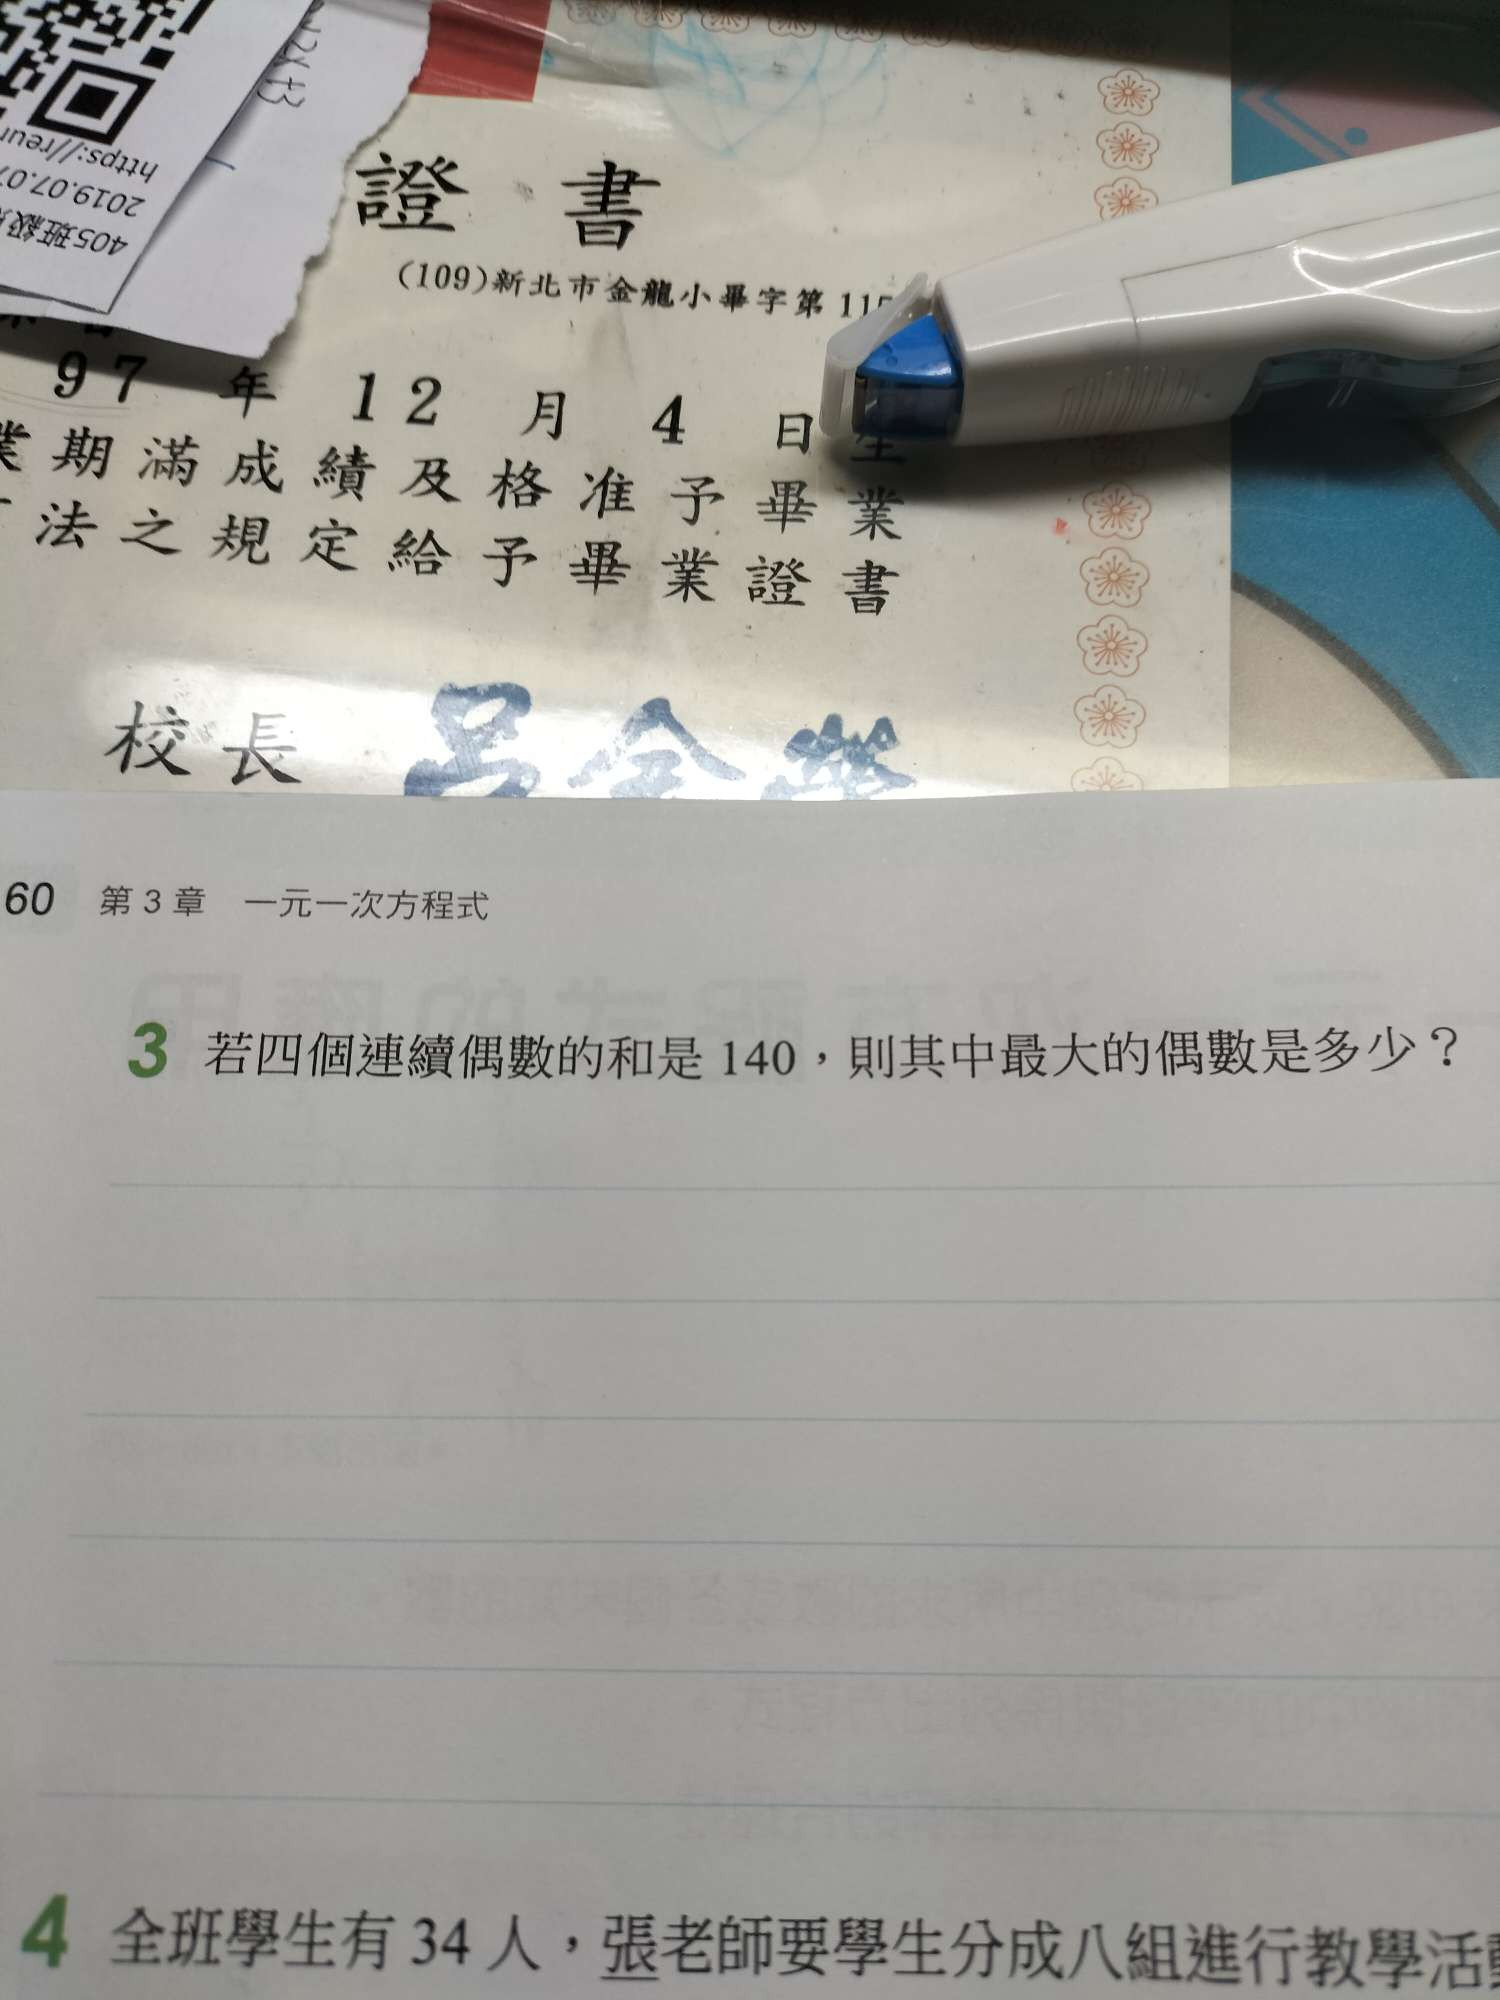 https://reun
2019.07.07
405班級
證書
(109)新北市金龍小畢字第115
97年12月4日生
業期滿成績及格准予畢業
法之規定給予畢業證書
校長
60 第3章 一元一次方程式
3 若四個連續偶數的和是140,則其中最大的偶數是多少?
4 全班學生有34人,張老師要學生分成八組進行教學活動